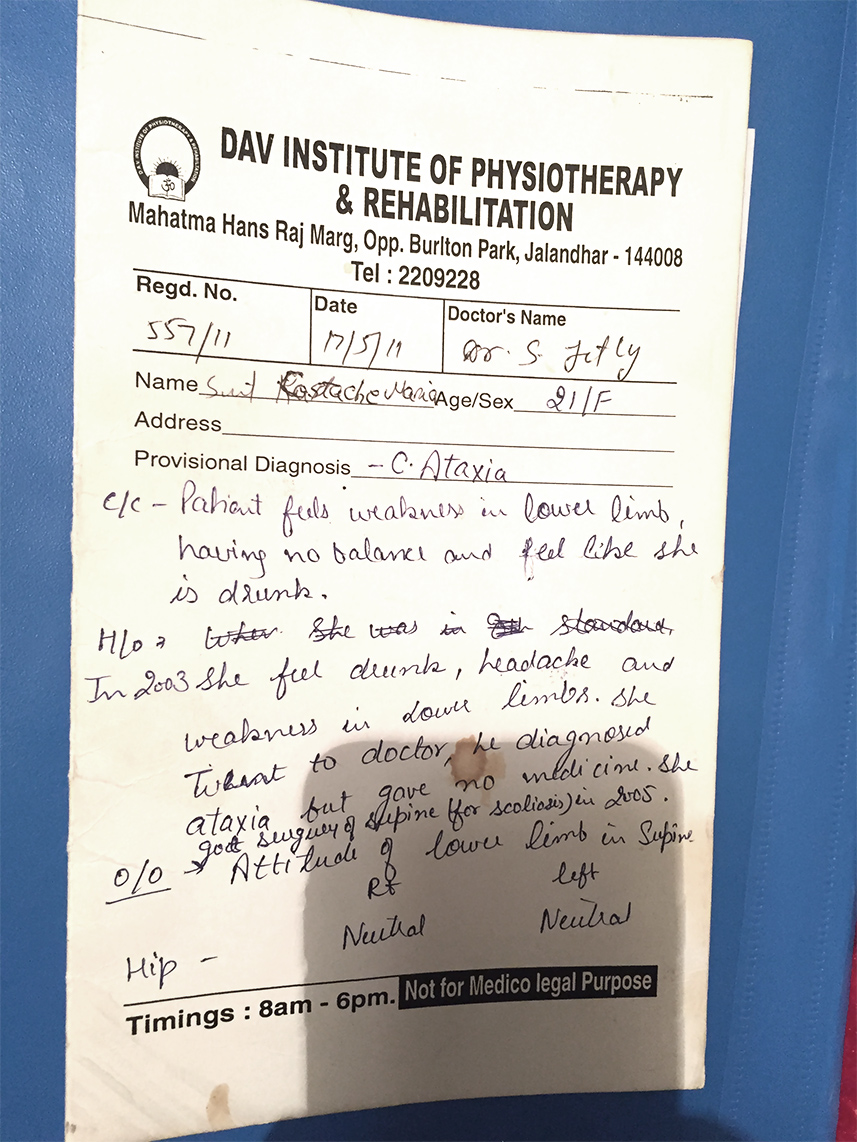 DAV INSTITUTE OF PHYSIOTHERAPY & REHABILITATION
DAV INSTITUTE OF PHYSIOTHERAPY
& REHABILITATION
Mahatma Hans Raj Marg, Opp. Burlton Park, Jalandhar - 144008
Tel : 2209228
Regd. No. Date Doctor's Name
557/11 17/5/11 Dr. S. Jetly
Name Kostache Maria Age/Sex 21/F
Address
Provisional Diagnosis - C. Ataxia
C/C - Patient feels weakness in lower limb,
having no balance and feel like she
is drunk.
H/O → When She was in standard,
In 2003 she feel drunk, headache and
weakness in lower limbs. She
to doctor, he diagnosed
ataxia but gave no medicine. She
got surgury of supine (for scoliasis) in 2005.
O/O → Attitude of lower limb in Supine
Rt left
Neutral Neutral
Hip -
Timings : 8am - 6pm. Not for Medico legal Purpose